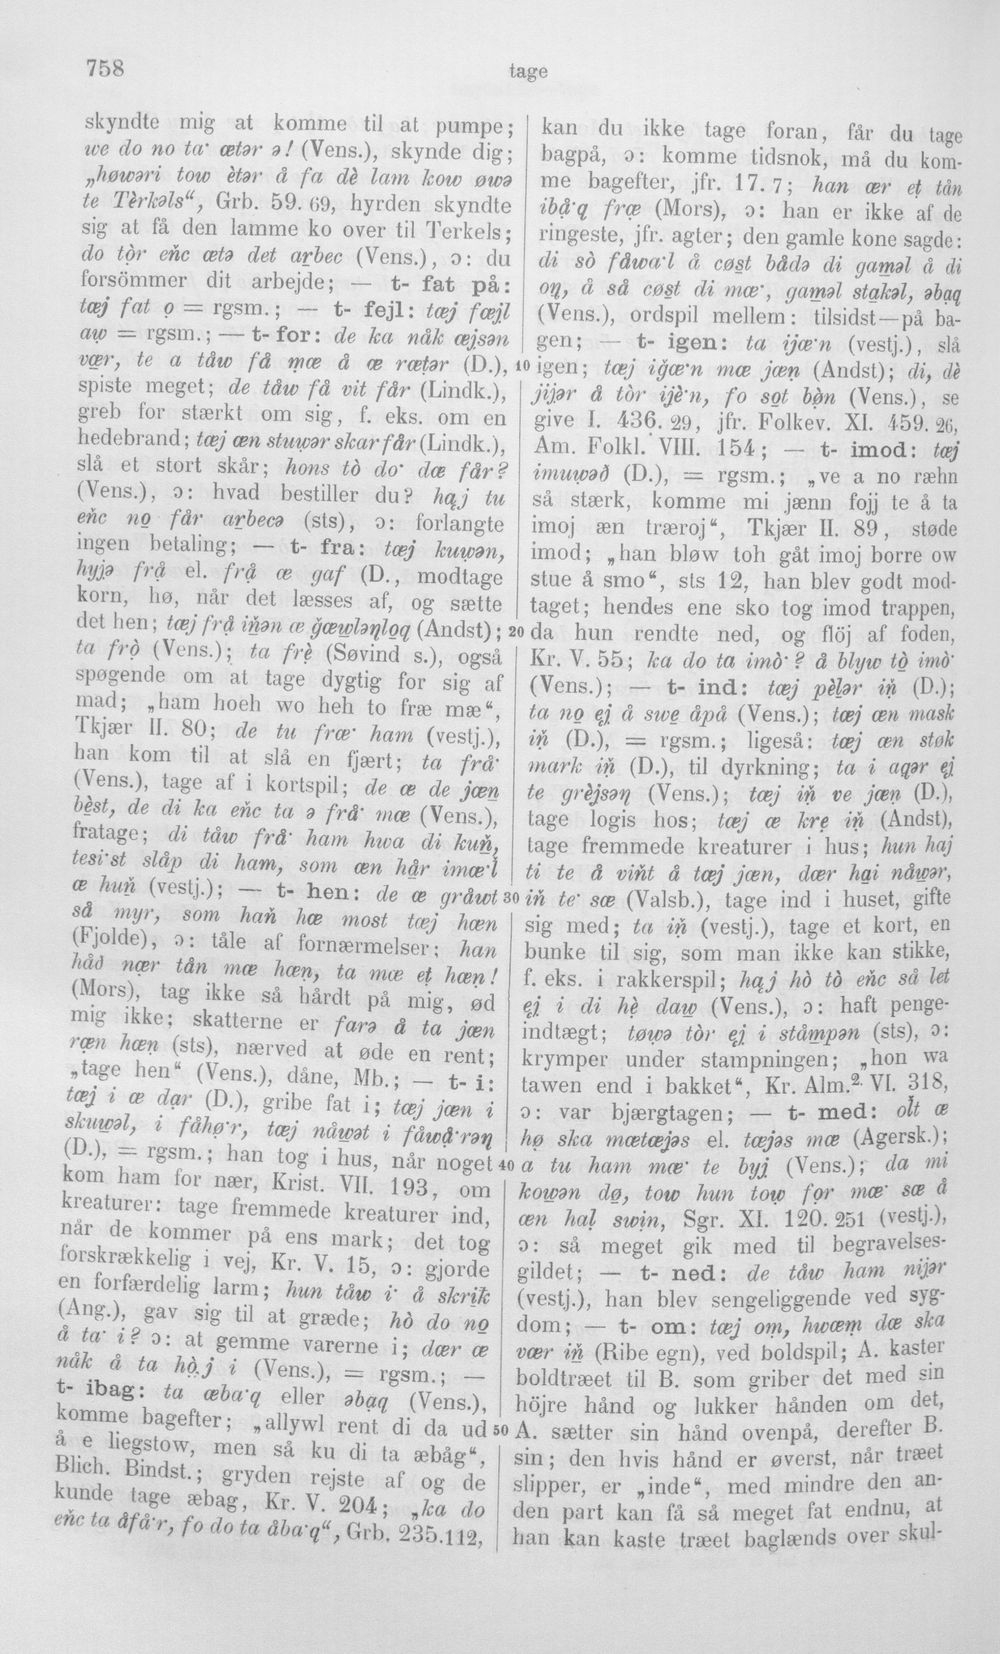 758
tage
skyndte mig at komme til at pumpe;
we do no ta· ætər ə! (Vens.), skynde dig;
„høwəri tow ètər å fa dè lam kow øwə
te Tèrkəls“, Grb. 59. 69, hyrden skyndte
sig at få den lamme ko over til Terkels;
do tòr eñc ætə det arbec (Vens.), ɔ: du
forsömmer dit arbejde; — t- fat på:
tæj fat o̱ = rgsm.; — t- fejl: tæj fæjl
aw = rgsm.; — t- for: de ka nåk æjsən
vær, te a tåw få mæ å œ rætər (D.),
spiste meget; de tåw få vit får (Lindk.),
greb for stærkt om sig, f. eks. om en
hedebrand; tæj æn stuwər skar får (Lindk.),
slå et stort skår; hons tò do· dæ får?
(Vens.), ɔ: hvad bestiller du? haj tu
eñc no̱ får arbecə (sts), ɔ: forlangte
ingen betaling; — t- fra: tæj kuwən,
hyjə frå el. frå œ gaf (D., modtage
korn, hø, når det læsses af, og sætte
det hen; tæj frå iñən œ ğæwləŋloq (Andst);
ta frò (Vens.); ta frè (Søvind s.), også
spøgende om at tage dygtig for sig af
mad; „ham hoeh wo heh to fræ mæ“,
Tkjær II. 80; de tu fræ· ham (vestj.),
han kom til at slå en fjært; ta frå·
(Vens.), tage af i kortspil; de œ de jæn
bèst, de di ka eñc ta ə frå· mæ (Vens.),
fratage; di tåw frå· ham hwa di kuñ,
tesi·st slåp di ham, som æn hår imæ·l
œ huñ (vestj.); — t- hen: de œ gråwt
så myr, som hañ hæ most tæj hæn
(Fjolde), ɔ: tåle af fornærmelser; han
håd nær tån mæ hæn, ta mæ et hæn!
(Mors), tag ikke så hårdt på mig, ød
mig ikke; skatterne er farə å ta jæn
ræn hæn (sts), nærved at øde en rent;
„tage hen“ (Vens.), dåne, Mb.; — t- i:
tæj i œ dar (D.), gribe fat i; tæj jæn i
skuwəl, i fåhø·r, tæj nåwət i fåwå·rəŋ
(D.), = rgsm.; han tog i hus, når noget
kom ham for nær, Krist. VII. 193, om
kreaturer: tage fremmede kreaturer ind,
når de kommer på ens mark; det tog
forskrækkelig i vej, Kr. V. 15, ɔ: gjorde
en forfærdelig larm; hun tåw i· å skrik
(Ang.), gav sig til at græde; hò do no̱
å ta· i? ɔ: at gemme varerne i; dær œ
nåk å ta hò̱j i (Vens.), = rgsm.; —
t- ibag: ta æba·q eller əbaq (Vens.),
komme bagefter; „allywl rent di da ud
å e liegstow, men så ku di ta æbåg“,
Blich. Bindst.; gryden rejste af og de
kunde tage æbag, Kr. V. 204; „ka do
eñc ta åfå·r, fo do ta åba·q“, Grb. 235.112,
kan du ikke tage foran, får du tage
bagpå, ɔ: komme tidsnok, må du kom-
me bagefter, jfr. 17. 7; han ær et tån
ibå·q fræ (Mors), ɔ: han er ikke af de
ringeste, jfr. agter; den gamle kone sagde:
di sò fåwa·l å cøst bådə di gaməl å di
oŋ, å så cøst di mæ·, gaməl stakəl, əbaq
(Vens.), ordspil mellem: tilsidst—på ba-
gen; — t- igen: ta ijæ·n (vestj.), slå
10 igen; tæj iğæ·n mæ jæn (Andst); di, dè
jijər å tòr ijè·n, fo sot bò̱n (Vens.), se
give I. 436. 29, jfr. Folkev. XI. 459. 26,
Am. Folkl. VIII. 154; — t- imod: tæj
imuwəð (D.), = rgsm.; „ve a no ræhn
så stærk, komme mi jænn fojj te å ta
imoj æn træroj“, Tkjær II. 89, støde
imod; „han bløw toh gåt imoj borre ow
stue å smo“, sts 12, han blev godt mod-
taget; hendes ene sko tog imod trappen,
20 da hun rendte ned, og flöj af foden,
Kr. V. 55; ka do ta imò·? å blyw tò imò·
(Vens.); — t- ind: tæj pèlər iñ (D.);
ta no̱ ej å swe åpå (Vens.); tæj æn mask
iñ (D.), = rgsm.; ligeså: tæj æn støk
mark iñ (D.), til dyrkning; ta i aqər ej
te grèjsəŋ (Vens.); tæj iñ ve jæn (D.),
tage logis hos; tæj œ kre iñ (Andst),
tage fremmede kreaturer i hus; hun haj
ti te å viñt å tæj jæn, dær hai nåwər,
30 iñ te· sæ (Valsb.), tage ind i huset, gifte
sig med; ta iñ (vestj.), tage et kort, en
bunke til sig, som man ikke kan stikke,
f. eks. i rakkerspil; haj hò tò eñc så let
ej i di hè daw (Vens.), ɔ: haft penge-
indtægt; tøwə tòr ej i ståmpən (sts), ɔ:
krymper under stampningen; „hon wa
tawen end i bakket“, Kr. Alm.² VI. 318,
ɔ: var bjærgtagen; — t- med: olt œ
hø ska mætæjəs el. tæjəs mæ (Agersk.);
40 a tu ham mæ· te byj (Vens.); da mi
kowən dø, tow hun tow for mæ· sæ å
æn hal swin, Sgr. XI. 120. 251 (vestj.),
ɔ: så meget gik med til begravelses-
gildet; — t- ned: de tåw ham nijər
(vestj.), han blev sengeliggende ved syg-
dom; — t- om: tæj om, hwæm dæ ska
vær iñ (Ribe egn), ved boldspil; A. kaster
boldtræet til B. som griber det med sin
höjre hånd og lukker hånden om det,
50 A. sætter sin hånd ovenpå, derefter B.
sin; den hvis hånd er øverst, når træet
slipper, er „inde“, med mindre den an-
den part kan få så meget fat endnu, at
han kan kaste træet baglænds over skul-